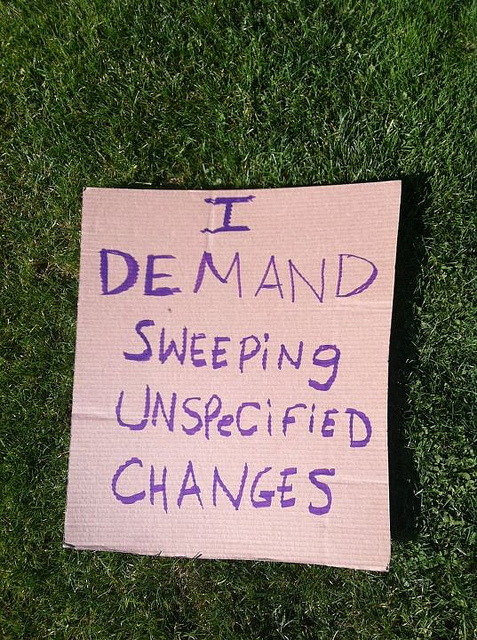 I
DEMAND
SWEEPiNg
UNSPeCiFiED
CHANGES